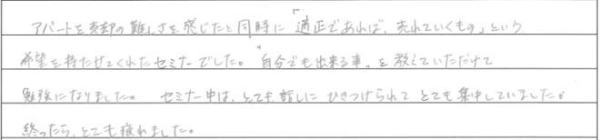 アパートを売却の難しさを感じたと同時に「適正であれば、売れていくもの」という
希望を持たせてくれたセミナーでした。"自分でも出来る事"を教えていただけて
勉強になりました。 セミナー中は、とても話しにひきつけられてとても集中していました。
終ったら、とても疲れました。